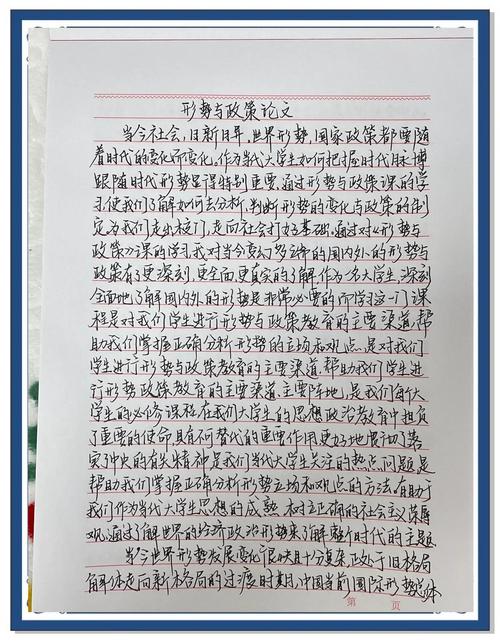 形势与政策论文
当今社会,日新月异,世界形势,国家政策都要随
着时代的变化而变化,作为当代大学生如何把握时代脉搏
跟随时代形势显得特别重要,通过形势与政策课的学
习,使我们了解如何去分析,判断形势的变化与政策的制
定,为我们走出校门,走向社会打好基础,通过对《形势与
政策》课的学习,我对当今变幻多端的国内外的形势与
政策有了更深刻,更全面,更真实的了解,作为一名大学生,深刻
全面地了解国内外的形势是非常必要的,而学习这一门课
程是对我们学生进行形势与政策教育的主要渠道,帮
助我们掌握正确分析形势的立场和观点,是对我们
学生进行形势与政策教育的主要渠道,帮助我们学生进
行形势政策教育的主要渠道,主要阵地,是我们每个大
学生的必修课程,在我们大学生的思想政治教育中担负
了重要的使命,具有不可替代的重要作用,更好地贯彻了落
实了中央的有关精神,是我们当代大学生关注的热点问题,是
帮助我们掌握正确分析形势立场和观点的方法,有助于
我们作为当代大学生思想的成熟,树立正确的社会主义荣辱
观,通过了解世界的经济政治形势来了解整个时代的主题
当今世界形势发展变化很快且十分复杂,政处于旧格局
解体走向新格局的过度时期,中国当前国际形势总体
第 页